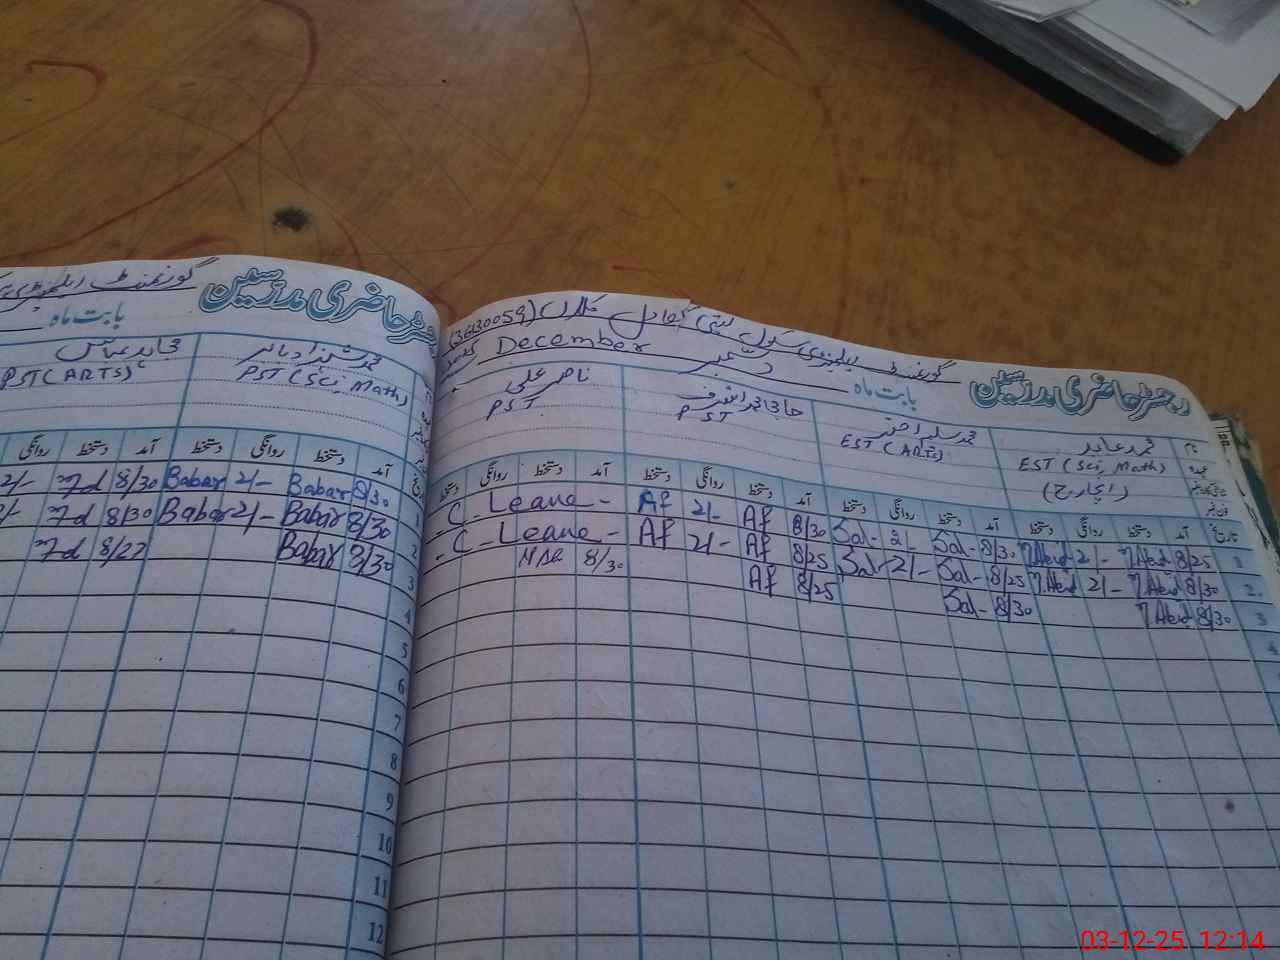 رجسٹر حاضری مدرسین
گورنمنٹ ایلیمنٹری سکول بستی کلاں (36130059)
بابت ماہ دسمبر December
نام محمد عابد
عہدہ EST (Sci, Math)
(انچارج)
محمد سلیم اختر
EST (ARTS)
حاجی محمد اشرف
PST
ناصر علی
PST
تاریخ آمد دستخط روانگی دستخط آمد دستخط روانگی دستخط آمد دستخط روانگی دستخط آمد دستخط روانگی دستخط
1 8/25 M.Abid 2/- M.Abid 8/30 Sal- 2/- Sal- 8/30 Af 2/- Af - C - Leave -
2 8/30 M.Abid 2/- M.Abid 8/25 Sal- 2/- Sal- 8/25 Af 2/- Af - C - Leave -
3 8/30 M.Abid 8/30 Sal- 8/25 Af 8/30
4
رجسٹر حاضری مدرسین
گورنمنٹ ایلیمنٹری
بابت ماہ
محمد شہزاد بابر
PST (Sci, Math)
عباس
PST (ARTS)
آمد دستخط روانگی دستخط آمد دستخط روانگی
1 8/30 Babar 2/- Babar 8/30 2/-
2 8/30 Babar 2/- Babar 8/30
3 8/30 Babar 8/27
4
5
6
7
8
9
10
11
12
03-12-25 12:14